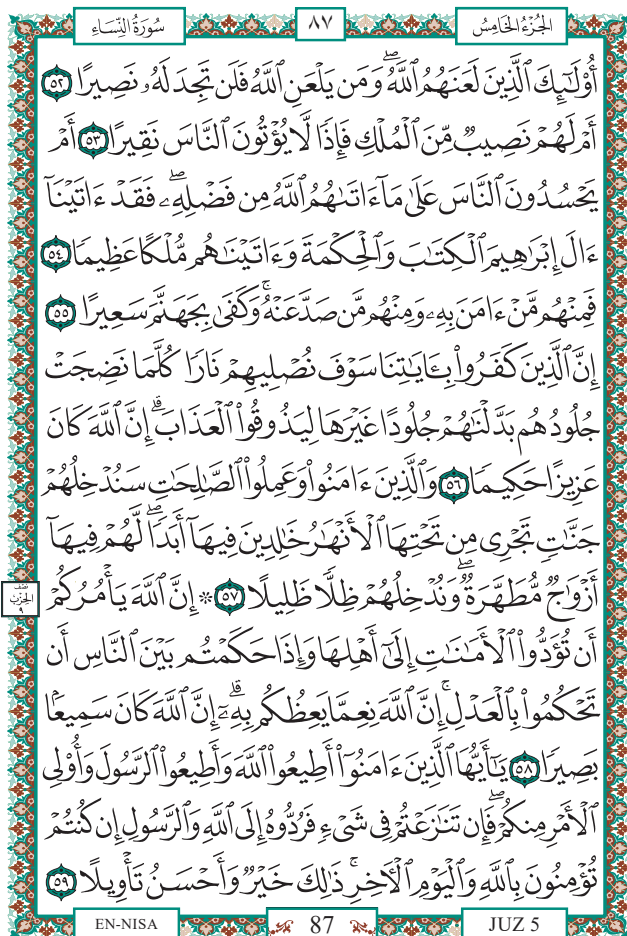 سُورَةُ النِّسَاءِ ٨٧ الجُزْءُ الخَامِسُ
أُو۟لَـٰٓئِكَ ٱلَّذِينَ لَعَنَهُمُ ٱللَّهُۖ وَمَن يَلْعَنِ ٱللَّهُ فَلَن تَجِدَ لَهُۥ نَصِيرًا ٥٢
أَمْ لَهُمْ نَصِيبٌ مِّنَ ٱلْمُلْكِ فَإِذًا لَّا يُؤْتُونَ ٱلنَّاسَ نَقِيرًا ٥٣ أَمْ
يَحْسُدُونَ ٱلنَّاسَ عَلَىٰ مَآ ءَاتَىٰهُمُ ٱللَّهُ مِن فَضْلِهِۦۖ فَقَدْ ءَاتَيْنَآ
ءَالَ إِبْرَٰهِيمَ ٱلْكِتَـٰبَ وَٱلْحِكْمَةَ وَءَاتَيْنَـٰهُم مُّلْكًا عَظِيمًا ٥٤
فَمِنْهُم مَّنْ ءَامَنَ بِهِۦ وَمِنْهُم مَّن صَدَّ عَنْهُۚ وَكَفَىٰ بِجَهَنَّمَ سَعِيرًا ٥٥
إِنَّ ٱلَّذِينَ كَفَرُوا۟ بِـَٔايَـٰتِنَا سَوْفَ نُصْلِيهِمْ نَارًا كُلَّمَا نَضِجَتْ
جُلُودُهُم بَدَّلْنَـٰهُمْ جُلُودًا غَيْرَهَا لِيَذُوقُوا۟ ٱلْعَذَابَۗ إِنَّ ٱللَّهَ كَانَ
عَزِيزًا حَكِيمًا ٥٦ وَٱلَّذِينَ ءَامَنُوا۟ وَعَمِلُوا۟ ٱلصَّـٰلِحَـٰتِ سَنُدْخِلُهُمْ
جَنَّـٰتٍ تَجْرِى مِن تَحْتِهَا ٱلْأَنْهَـٰرُ خَـٰلِدِينَ فِيهَآ أَبَدًاۖ لَّهُمْ فِيهَآ
أَزْوَٰجٌ مُّطَهَّرَةٌۖ وَنُدْخِلُهُمْ ظِلًّا ظَلِيلًا ٥٧ ۞ إِنَّ ٱللَّهَ يَأْمُرُكُمْ
أَن تُؤَدُّوا۟ ٱلْأَمَـٰنَـٰتِ إِلَىٰٓ أَهْلِهَا وَإِذَا حَكَمْتُم بَيْنَ ٱلنَّاسِ أَن
تَحْكُمُوا۟ بِٱلْعَدْلِۚ إِنَّ ٱللَّهَ نِعِمَّا يَعِظُكُم بِهِۦٓۗ إِنَّ ٱللَّهَ كَانَ سَمِيعًۢا
بَصِيرًا ٥٨ يَـٰٓأَيُّهَا ٱلَّذِينَ ءَامَنُوٓا۟ أَطِيعُوا۟ ٱللَّهَ وَأَطِيعُوا۟ ٱلرَّسُولَ وَأُو۟لِى
ٱلْأَمْرِ مِنكُمْۖ فَإِن تَنَـٰزَعْتُمْ فِى شَىْءٍ فَرُدُّوهُ إِلَى ٱللَّهِ وَٱلرَّسُولِ إِن كُنتُمْ
تُؤْمِنُونَ بِٱللَّهِ وَٱلْيَوْمِ ٱلْـَٔاخِرِۚ ذَٰلِكَ خَيْرٌ وَأَحْسَنُ تَأْوِيلًا ٥٩
نصف
الحزب
٩
EN-NISA 87 JUZ 5